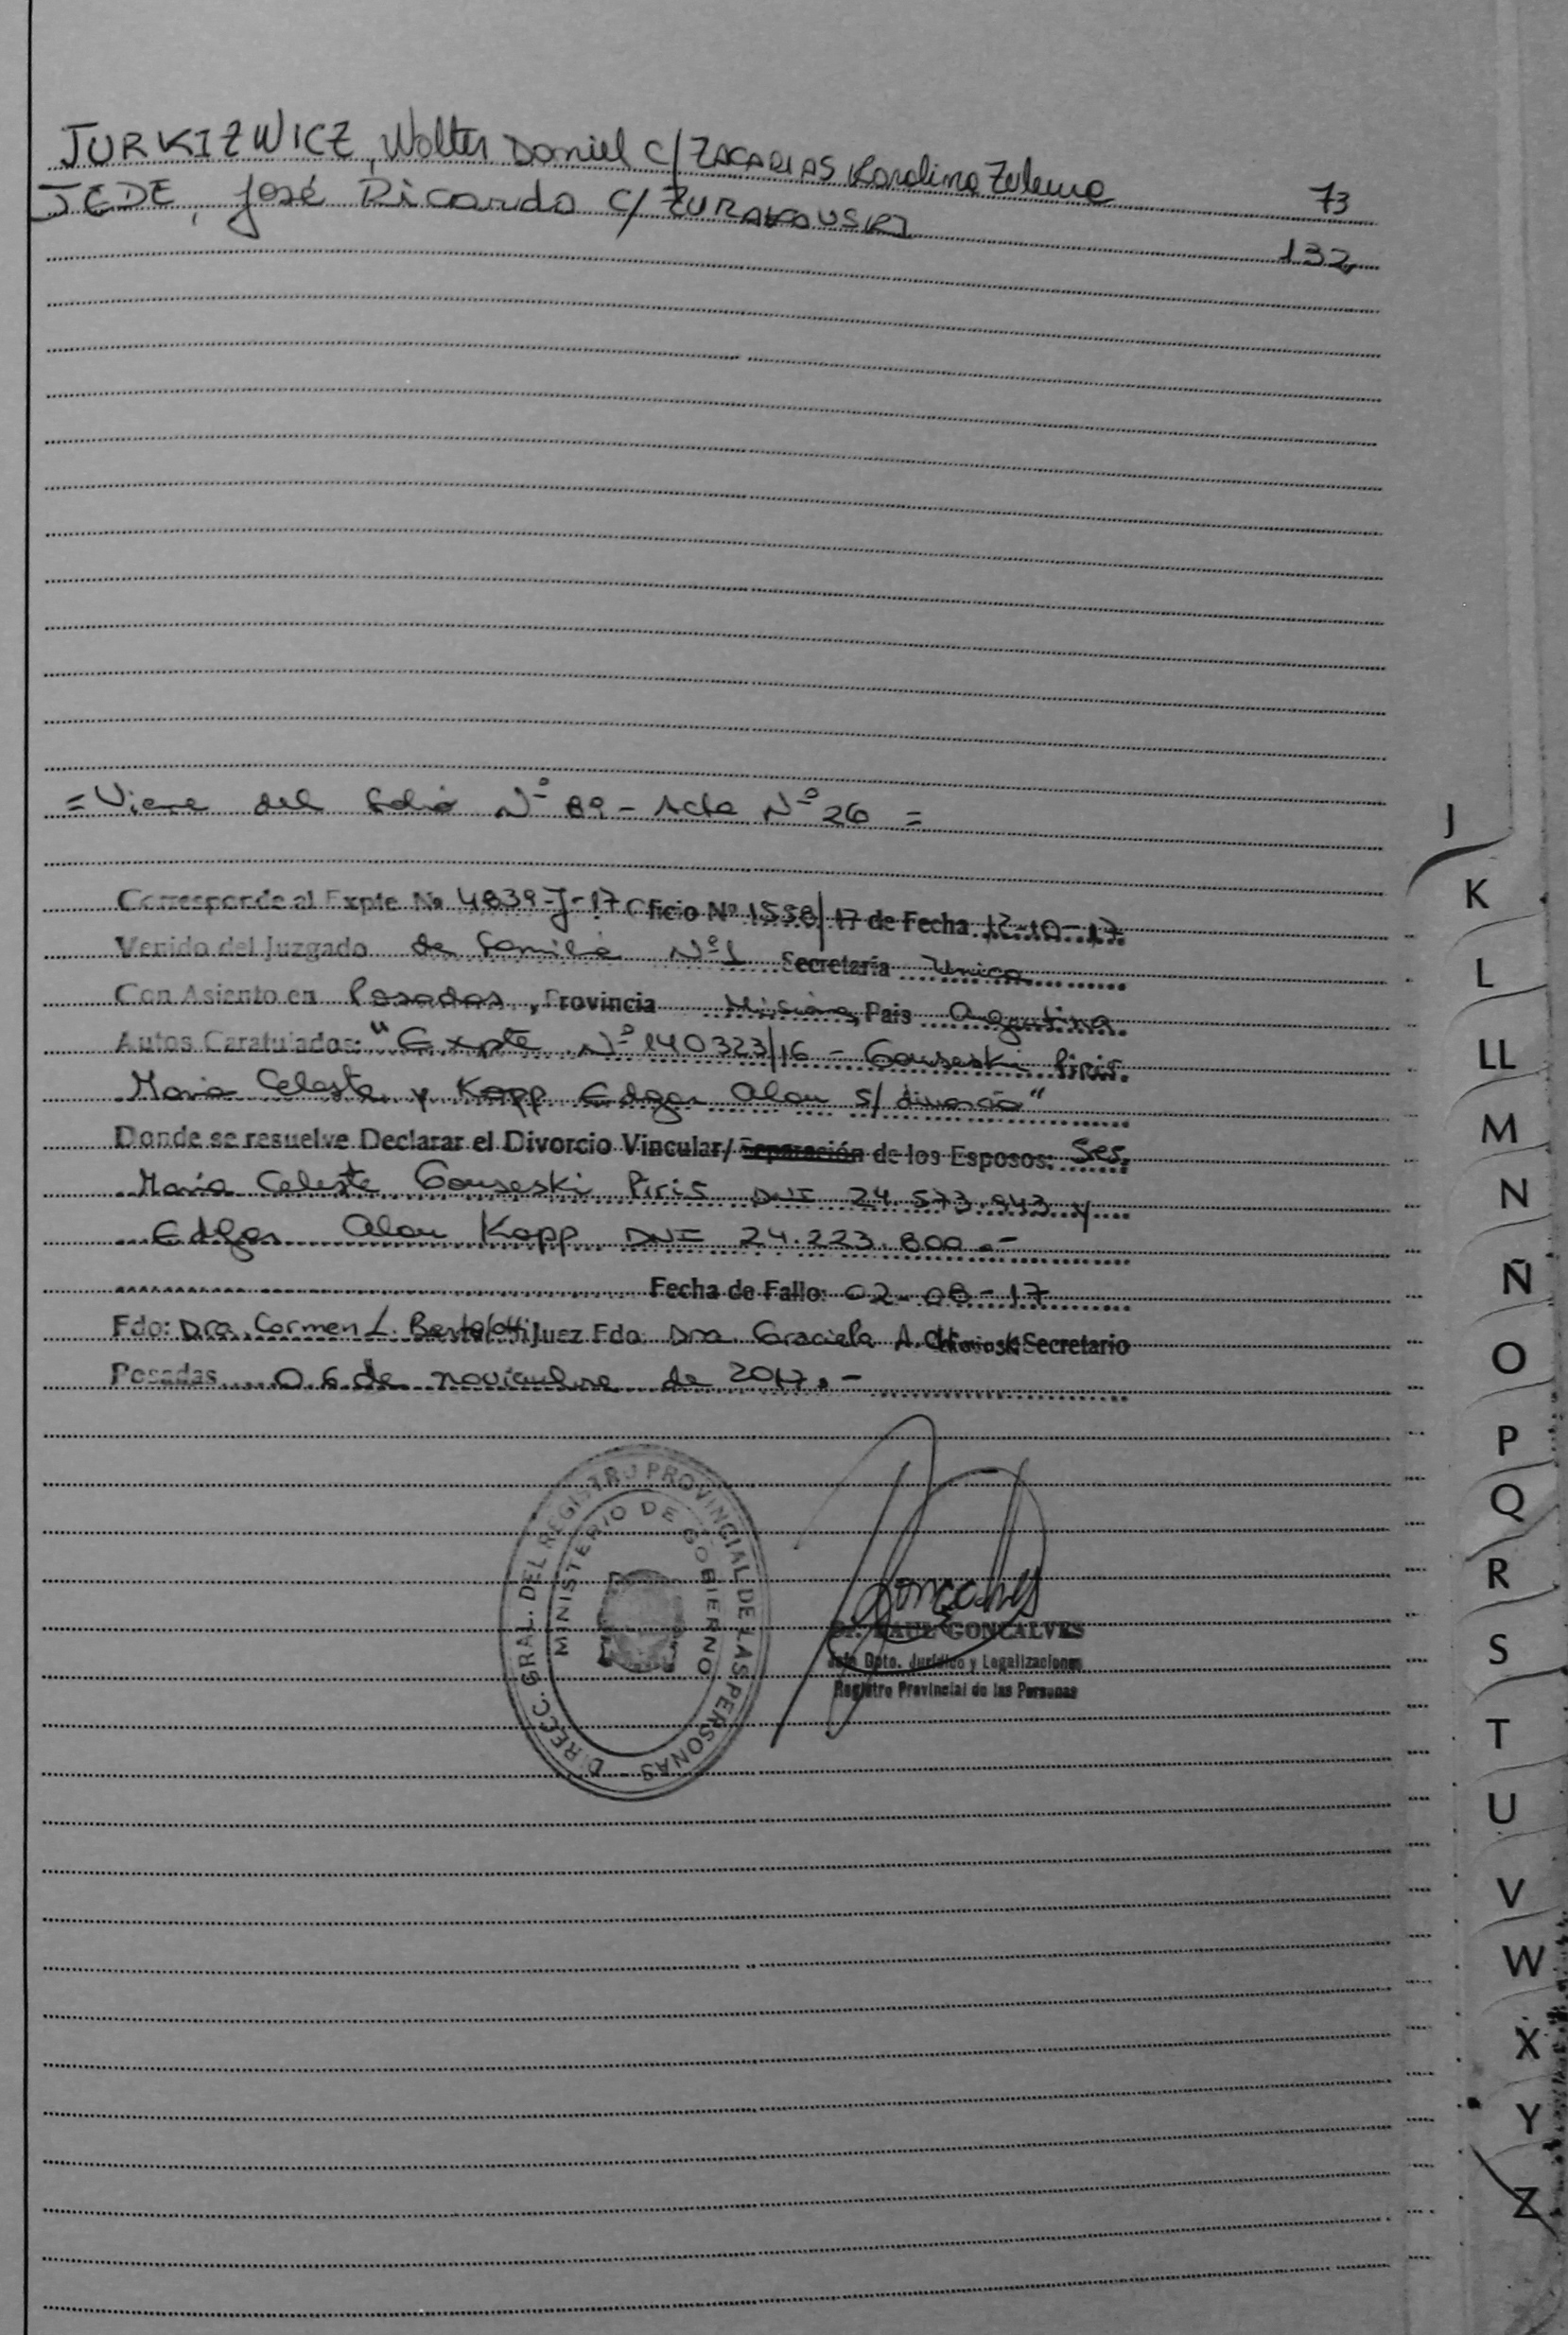 JURKIZWICZ, Walter Daniel c/ ZACARIAS Karolina Zulema 73
JEDE, José Ricardo c/ ZURAKOUSKI 132
= Viene del folio Nº 89 - Acta Nº 26 =
Corresponde al Expte No 4839-J-17 Oficio Nº 1558/17 de Fecha 12-10-17
Venido del Juzgado de Familia Nº1 Secretaría Unica
Con Asiento en Posadas, Provincia Misiones, Pais Argentina.
Autos Caratulados: "Expte Nº 140323/16 - Gouseski Piris
Maria Celeste y Kopp Edgar Alan S/ divorcio"
Donde se resuelve Declarar el Divorcio Vincular/ Separación de los Esposos: Ses.
María Celeste Gouseski Piris DNI 24.573.943 y
Edgar Alan Kopp DNI 24.223.800.-
Fecha de Fallo: 02-08-17
Fdo: Dra. Carmen L. Bertolotti Juez Fdo. Dra. Graciela A. Secretario
Posadas 06 de noviembre de 2017.-
DIRECC. GRAL. DEL REGISTRO PROVINCIAL DE LAS PERSONAS
MINISTERIO DE GOBIERNO
Goncalves
Dr. RAUL GONCALVES
Jefe Dpto. Jurídico y Legalizaciones
Registro Provincial de las Personas
J
K
L
LL
M
N
Ñ
O
P
Q
R
S
T
U
V
W
X
Y
Z